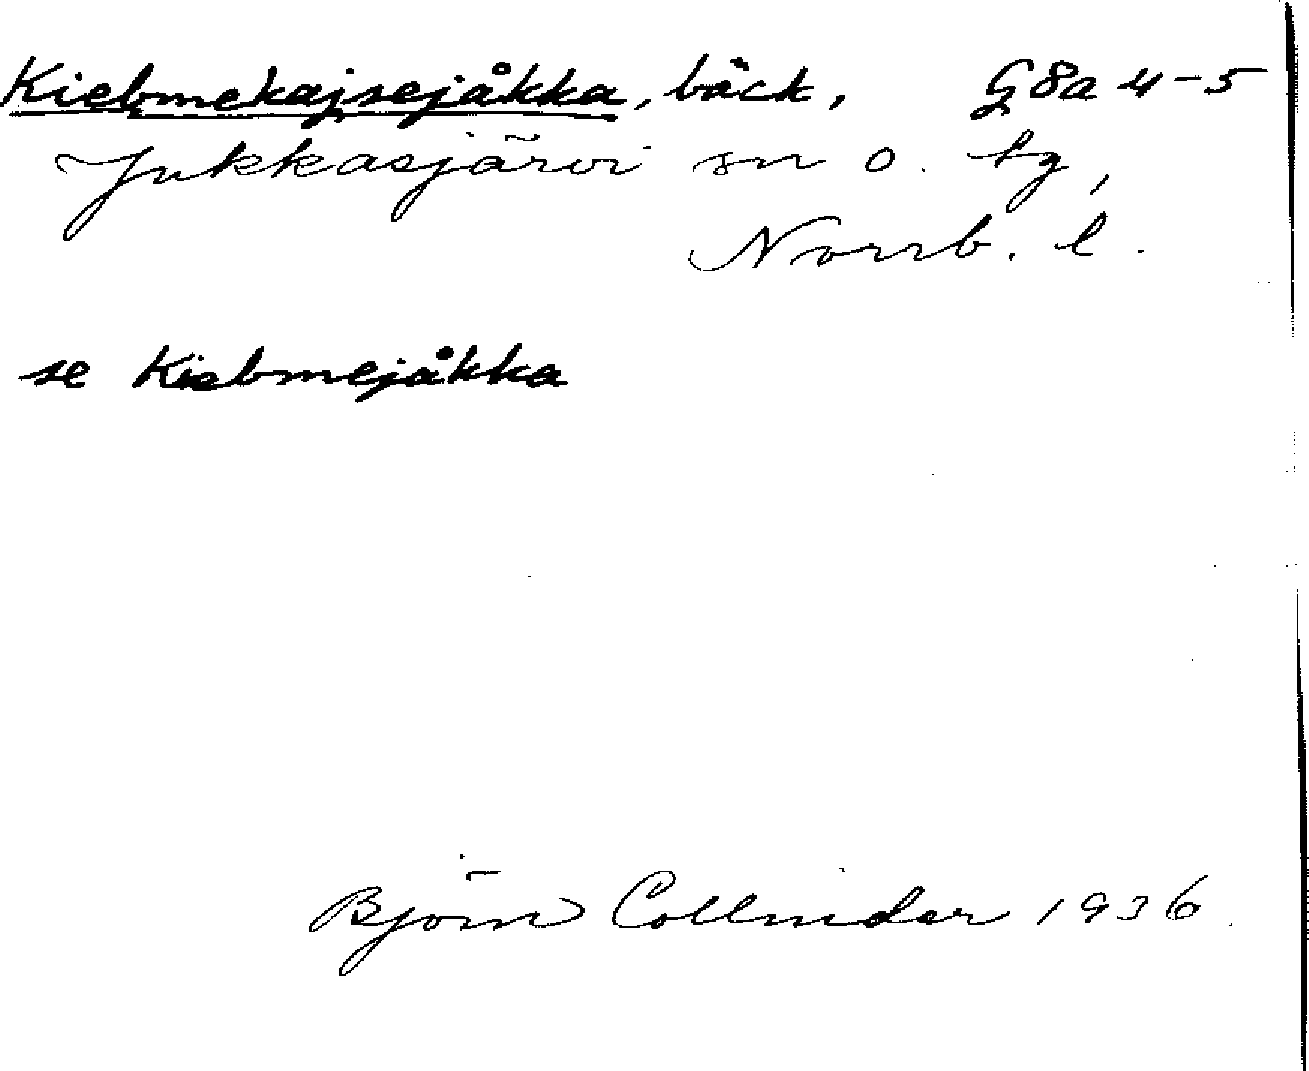 Kiebmekajsejåkka, bäck, G8a 4-5
Jukkasjärvi sn o. tg,
Norrb. l.
se Kiebmejåkka
Björn Collinder 1936